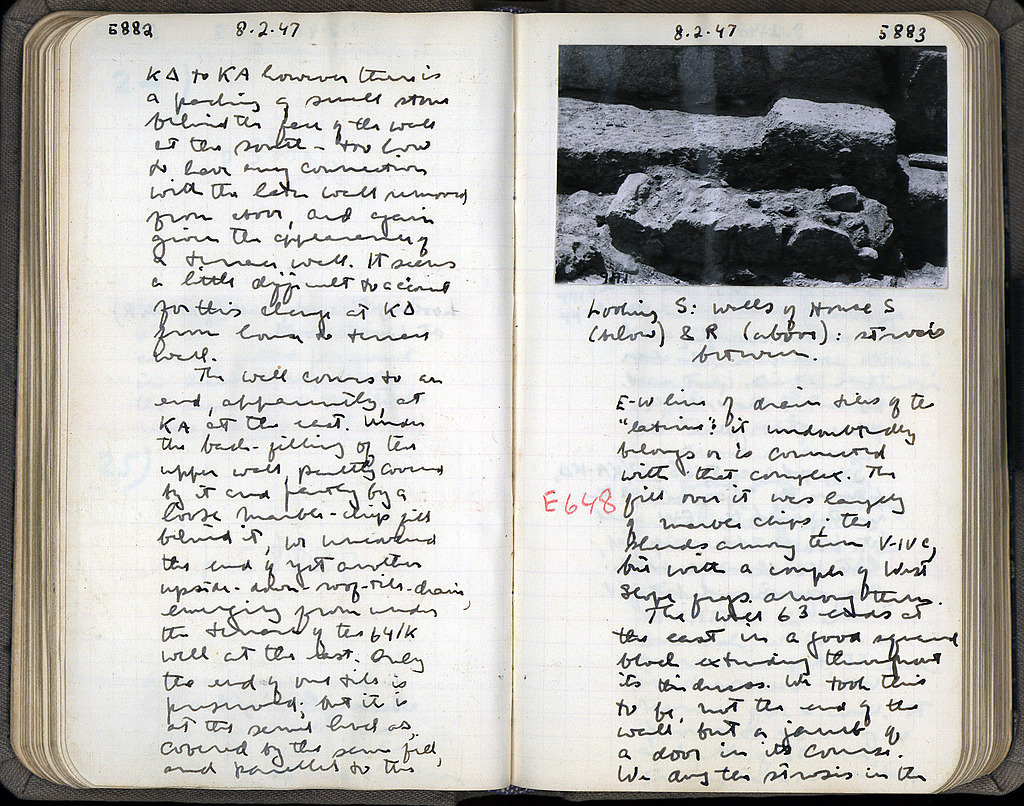 5882
8.2.47
KΔ to KA however there is
a packing of small stones
behind the face of the wall
at the south – too low
to have any connection
with the later wall removed
from above, and again
gives the appearance of
a terrace wall. It seems
a little difficult to account
for this change at KΔ
from house to terrace
wall.
The wall comes to an
end, apparently, at
KA at the east. Under
the back-filling of the
upper wall partly covered
by it and partly by a
loose marble-chip fill
behind it, we uncovered
the end of yet another
upside-down-roof-tile-drain,
emerging from under
the terrace of the 64/K
wall at the east. Only
the end of one tile is
preserved; but it is
at the same level as,
covered by the same fill,
and parallel to the
8.2.47
5883
Looking S: walls of House S
(below) & R (above): strosis
between.
E-W line of drain tiles of the
"latrine": it undoubtedly
belongs or is connected
with that complex. The
E648
fill over it was largely
of marble chips; the
sherds among them V-IV c,
but with a couple of West
Slope frags among them.
The wall 63 ends at
the east in a good squared
block extending throughout
its thickness. We took this
to be, not the end of the
wall but a jamb of
a door in its course.
We dug the strosis in the